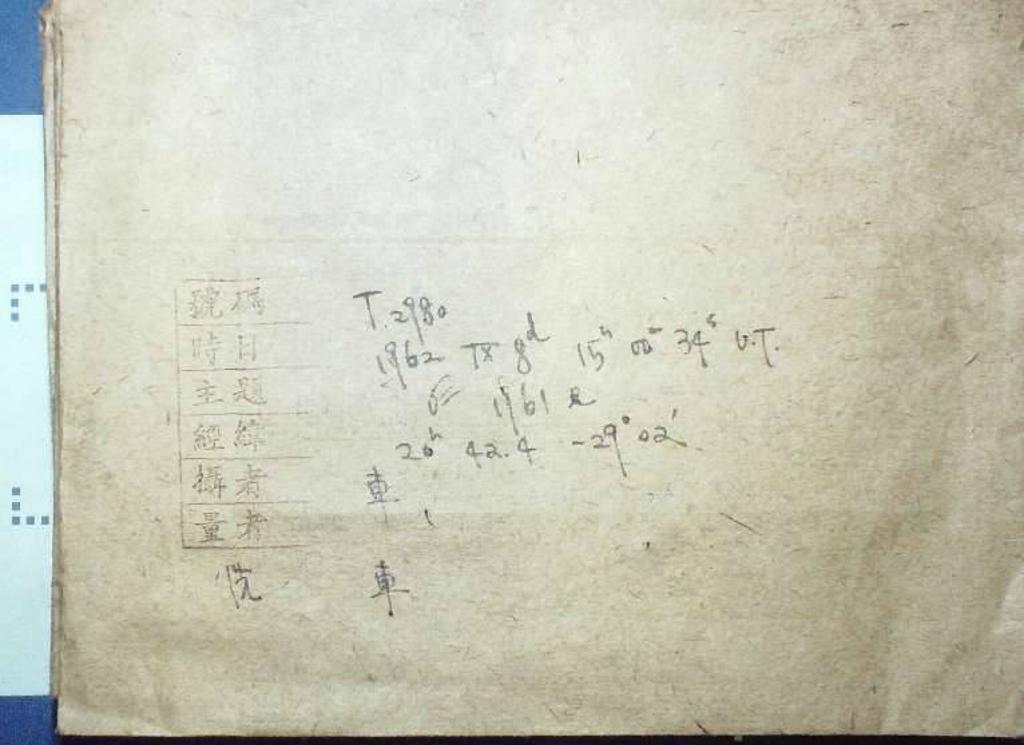 號碼 T.2980
時日 1962 IX 8d 15h 00m 34s U.T.
主題 1961 e
經緯 20h 42.4 -29°02'
攝者 車
量者
洗 車